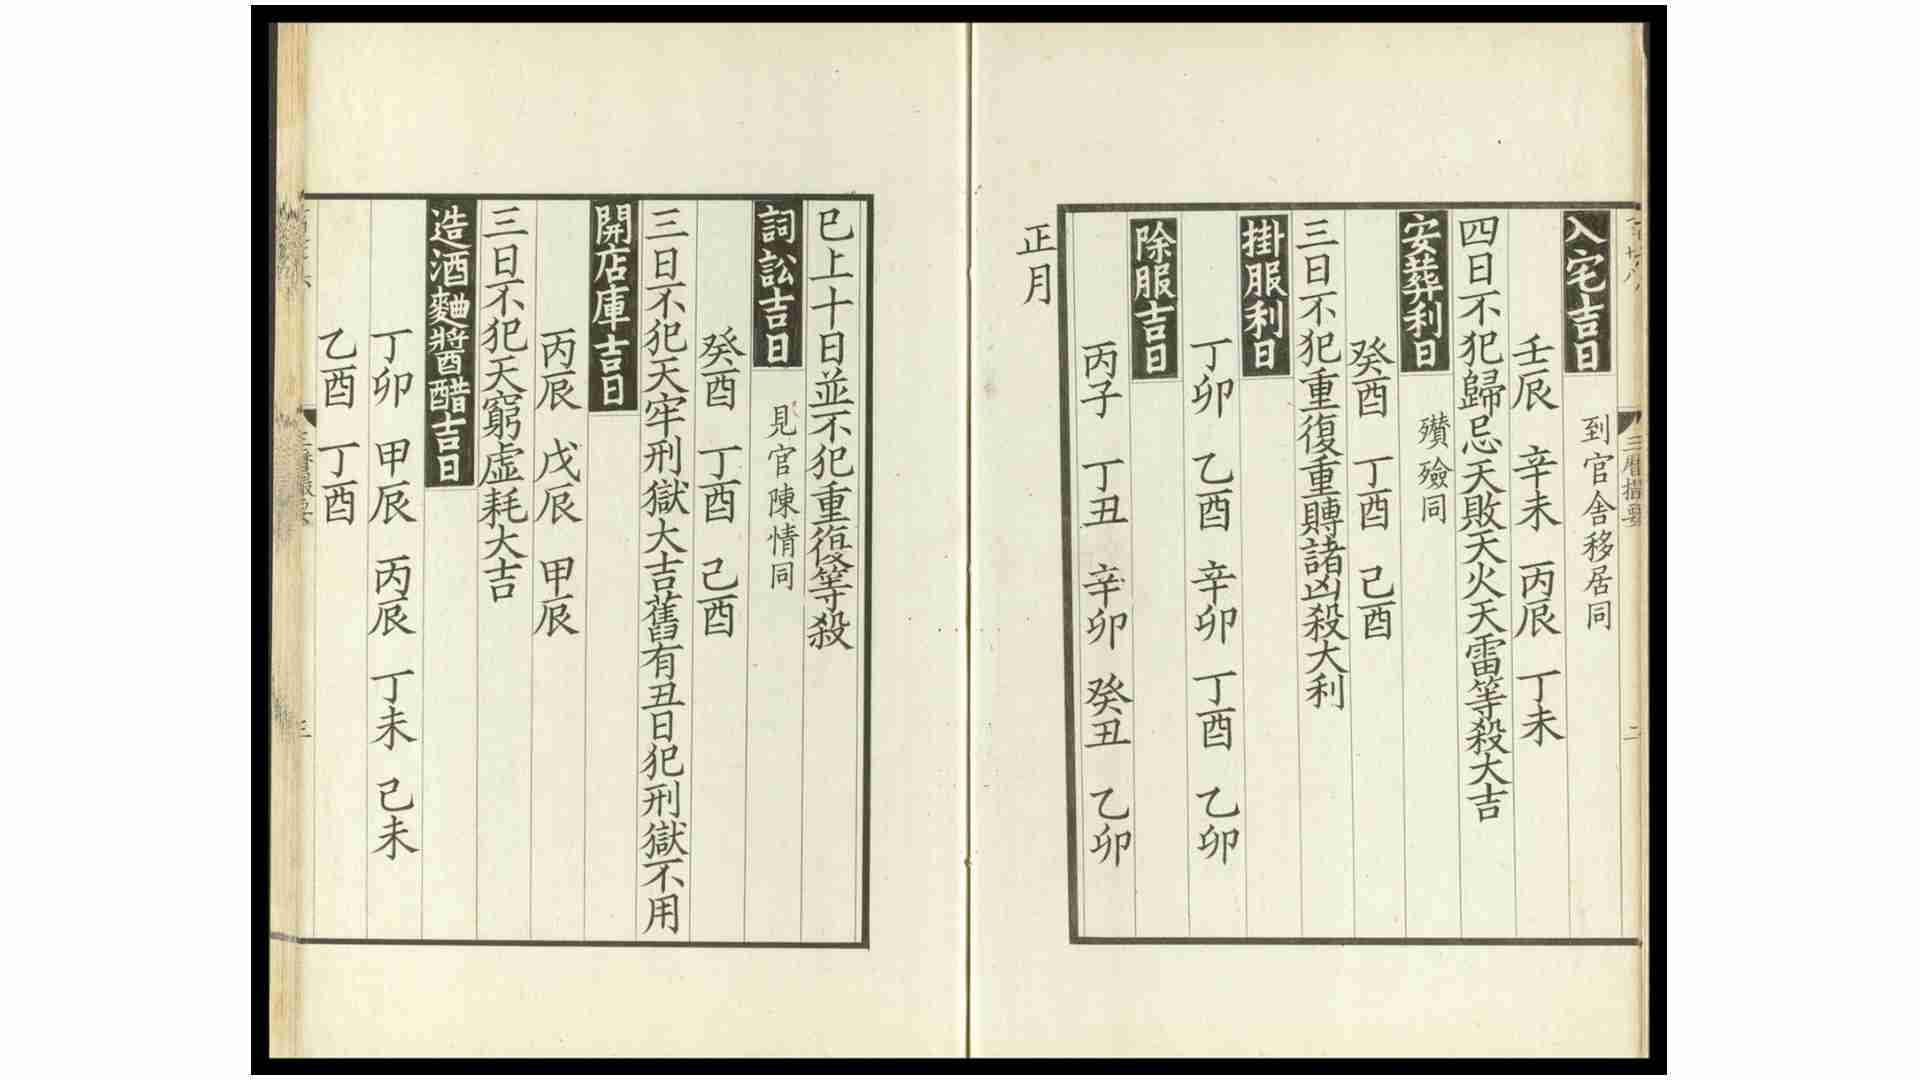 入宅吉日 到官舍移居同
壬辰 辛未 丙辰 丁未
四日不犯歸忌天敗天火天雷等殺大吉
安葬利日 殯殮同
癸酉 丁酉 己酉
三日不犯重復重賻諸凶殺大利
掛服利日
丁卯 乙酉 辛卯 丁酉 乙卯
除服吉日
丙子 丁丑 辛卯 癸丑 乙卯
正月
巳上十日並不犯重復等殺
詞訟吉日 見官陳情同
癸酉 丁酉 己酉
三日不犯天牢刑獄大吉舊有丑日犯刑獄不用
開店庫吉日
丙辰 戊辰 甲辰
三日不犯天窮虛耗大吉
造酒麯醬醋吉日
丁卯 甲辰 丙辰 丁未 己未
乙酉 丁酉
三